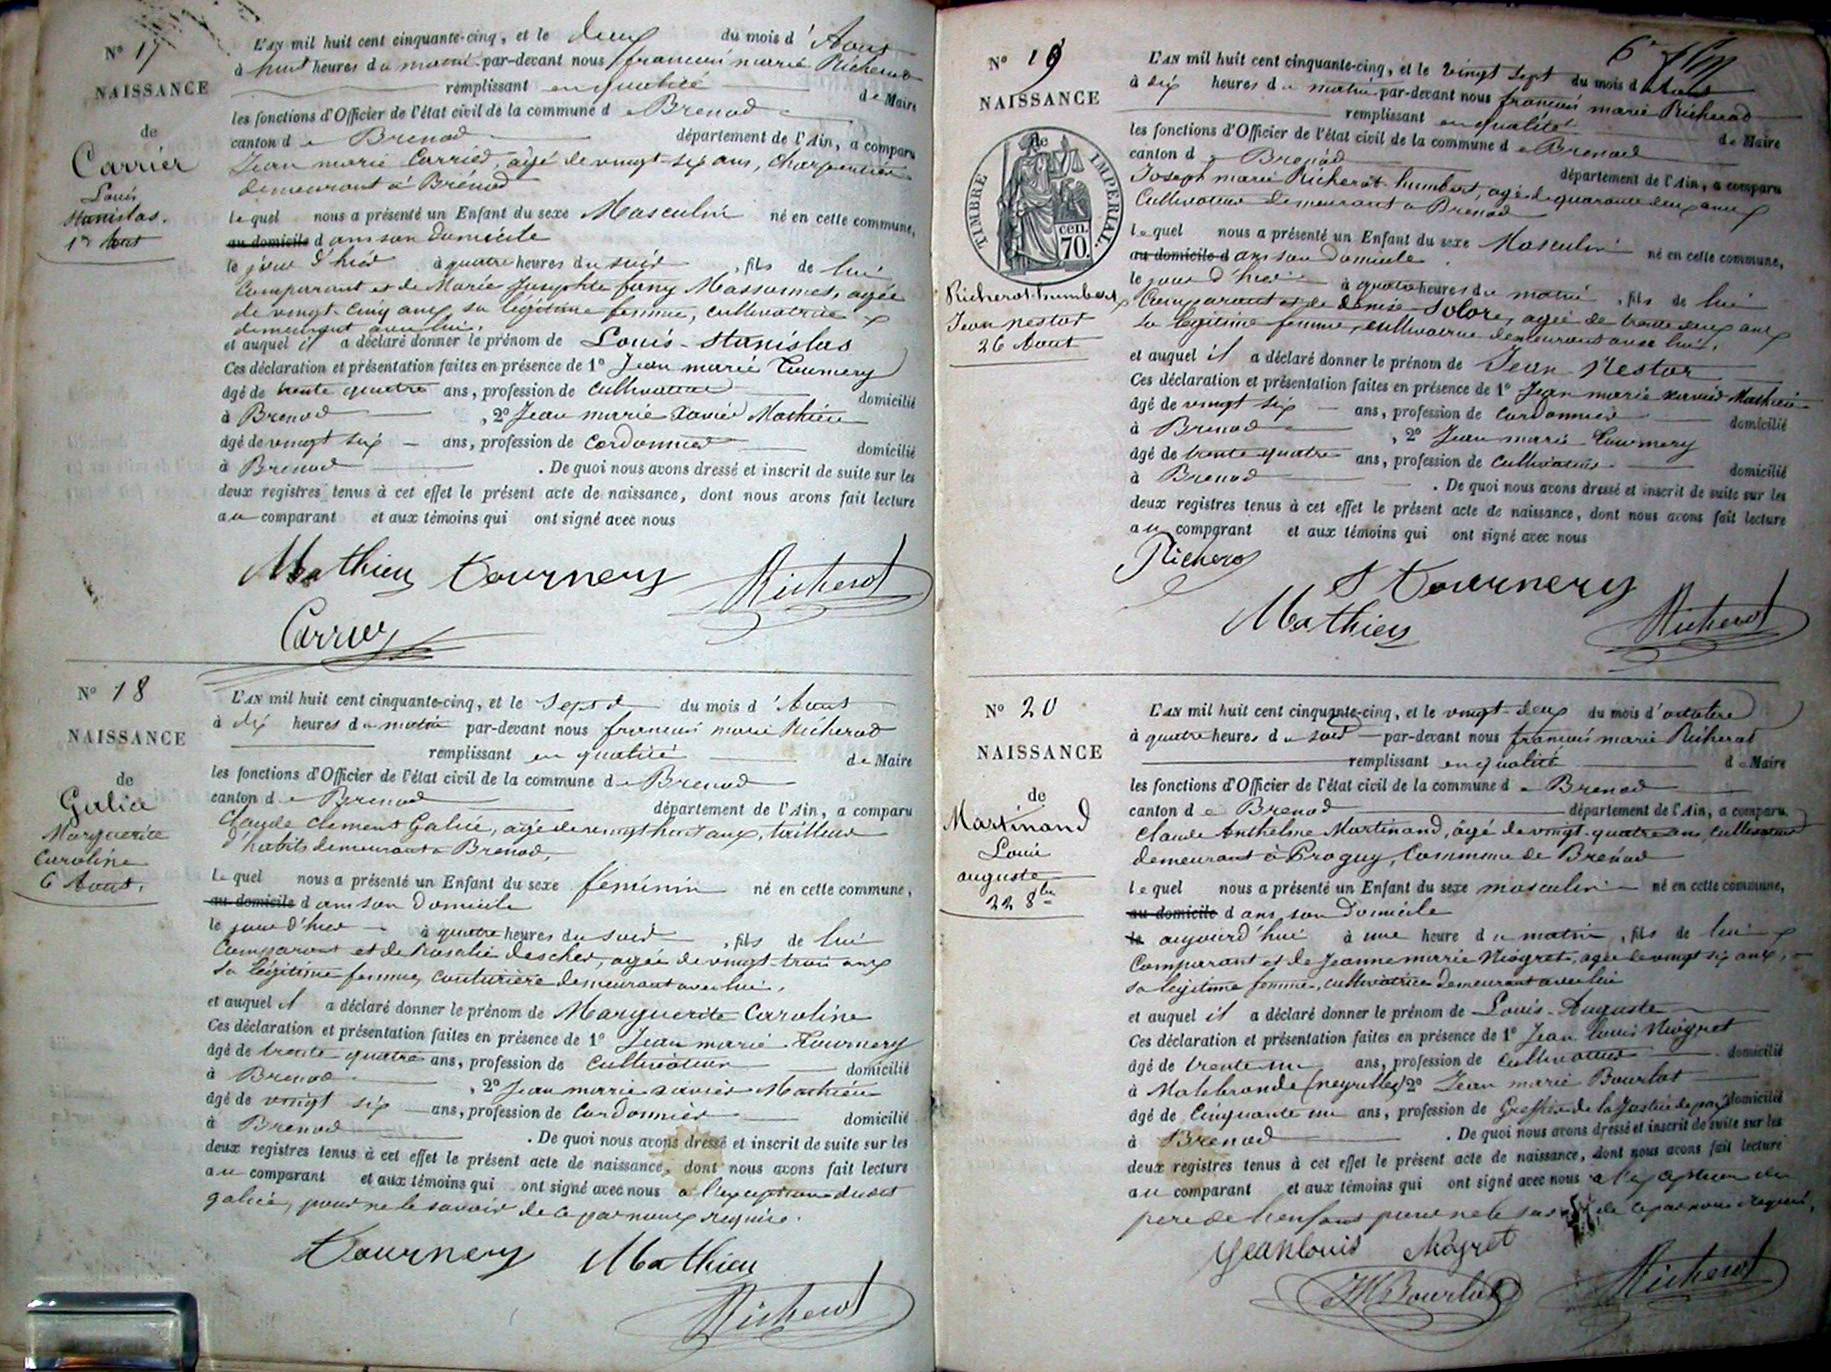 N° 17
NAISSANCE
de
Carrier
Louis
Stanislas.
1er Aout
L'AN mil huit cent cinquante-cinq, et le deux du mois d'Aout
à huit heures du matin par-devant nous francois marie Richerot
remplissant en qualité de Maire
les fonctions d'Officier de l'état civil de la commune de Brenod
canton de Brenod département de l'Ain, a comparu
Jean marie Carrier, agé de vingt-six ans, charpentier
demeurant à Brénod
lequel nous a présenté un Enfant du sexe Masculin né en cette commune,
au domicile dans son domicile
le jour d'hier à quatre heures du soir, fils de lui
Comparant et de Marie fany Massonnet, agée
de vingt-cinq ans, sa légitime femme, cultivatrice
demeurant avec lui.
et auquel il a déclaré donner le prénom de Louis-Stanislas
Ces déclaration et présentation faites en présence de 1° Jean marie Tournery
âgé de trente quatre ans, profession de cultivateur domicilié
à Brenod, 2° Jean marie Xavier Mathieu
âgé de vingt six ans, profession de Cordonnier domicilié
à Brenod. De quoi nous avons dressé et inscrit de suite sur les
deux registres tenus à cet effet le présent acte de naissance, dont nous avons fait lecture
au comparant et aux témoins qui ont signé avec nous
Mathieu Tournery Richerot
Carrier
N° 18
NAISSANCE
de
Galica
Marguerite
Caroline
6 Aout.
L'AN mil huit cent cinquante-cinq, et le sept du mois d'Aout
à dix heures du matin par-devant nous francois marie Richerot
remplissant en qualité de Maire
les fonctions d'Officier de l'état civil de la commune de Brenod
canton de Brenod département de l'Ain, a comparu
Claude Clement Galicé, agé de vingt huit ans, tailleur
habits demeurant a Brenod,
lequel nous a présenté un Enfant du sexe féminin né en cette commune,
au domicile dans son domicile
le jour d'hier à quatre heures du soir, fils de lui
Comparant et de Rosalie descher, agée de vingt-trois ans
sa légitime femme, couturière demeurant avec lui,
et auquel il a déclaré donner le prénom de Marguerite Caroline
Ces déclaration et présentation faites en présence de 1° Jean marie Tournery
âgé de trente-quatre ans, profession de cultivateur domicilié
à Brenod, 2° Jean marie xavier Mathieu
âgé de vingt six ans, profession de Cordonnier domicilié
à Brenod. De quoi nous avons dressé et inscrit de suite sur les
deux registres tenus à cet effet le présent acte de naissance, dont nous avons fait lecture
au comparant et aux témoins qui ont signé avec nous a l'exception dudit
galicé, pour ne le savoir de ce par nous requis.
Tournery Mathieu
Richerot
6e
N° 19
NAISSANCE
de
TIMBRE IMPERIAL.
70. cen.
Richerot-humbert
Jean nestor
26 Aout
L'AN mil huit cent cinquante-cinq, et le vingt sept du mois d'Aout
à dix heures du matin par-devant nous francois marie Richerot
remplissant en qualité de Maire
les fonctions d'Officier de l'état civil de la commune de Brenod
canton de Brenod département de l'Ain, a comparu
Joseph marie Richerot-humbert, agé de quarante deux ans
Cultivateur demeurant a Brenod
lequel nous a présenté un Enfant du sexe Masculin né en cette commune,
au domicile dans son domicile
le jour d'hier à quatre heures du matin, fils de lui
Comparant et de denise Solore, agée de trente deux ans
sa légitime femme, cultivatrice demeurant avec lui,
et auquel il a déclaré donner le prénom de Jean-Nestor
Ces déclaration et présentation faites en présence de 1° Jean marie xavier Mathieu
âgé de vingt six ans, profession de Cordonnier domicilié
à Brenod, 2° Jean marie Tournery
âgé de trente quatre ans, profession de Cultivateur domicilié
à Brenod. De quoi nous avons dressé et inscrit de suite sur les
deux registres tenus à cet effet le présent acte de naissance, dont nous avons fait lecture
au comparant et aux témoins qui ont signé avec nous
Richerot Tournery
Mathieu Richerot
N° 20
NAISSANCE
de
Martinand
Louis
auguste
22 8bre
L'AN mil huit cent cinquante-cinq, et le vingt-deux du mois d'octobre
à quatre heures du soir par-devant nous francois marie Richerot
remplissant en qualité de Maire
les fonctions d'Officier de l'état civil de la commune de Brenod
canton de Brenod département de l'Ain, a comparu
Claude Anthelme Martinand, âgé de vingt-quatre ans, cultivateur
demeurant à Croguy, Commune de Brenod
lequel nous a présenté un Enfant du sexe masculin né en cette commune,
au domicile dans son domicile
le aujourd'hui à une heure du matin, fils de lui
Comparant et de Jeanne marie Niogret, agée de vingt six ans,
sa légitime femme, cultivatrice demeurant avec lui
et auquel il a déclaré donner le prénom de Louis-Auguste
Ces déclaration et présentation faites en présence de 1° Jean Louis Niogret
âgé de trente un ans, profession de Cultivateur domicilié
à Malebronde (neyrolles) 2° Jean marie Bourlot
âgé de Cinquante un ans, profession de Greffier de la Justice de paix domicilié
à Brenod. De quoi nous avons dressé et inscrit de suite sur les
deux registres tenus à cet effet le présent acte de naissance, dont nous avons fait lecture
au comparant et aux témoins qui ont signé avec nous a l'exception du
pere de l'enfant pour ne le savoir de ce par nous requis,
Jean louis Niogret
JM Bourlot Richerot